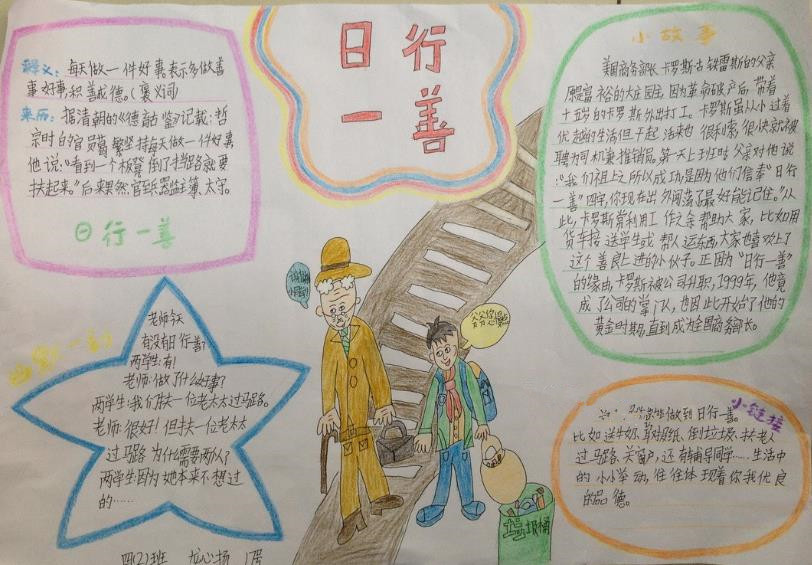 日行
一善
释义：每天做一件好事，表示多做善
事好事，积善成德。（褒义词）
来历：据清朝的《德育鉴》记载：哲
宗时的官员葛繁坚持每天做一件好事
他说："看到一个板凳倒了挡路就要
扶起来。"后来果然官至器监主簿、太守。
日行一善
小故事
美国商务部长卡罗斯·古铁雷斯的父亲
原是富裕的大庄园主，因为革命破产后，带着
十五岁的卡罗斯外出打工。卡罗斯虽从小过着
优越的生活但干起活来也很利索，很快就被
聘为司机兼推销员。第一天上班时父亲对他说
："我们祖上之所以成功是因为他们信奉"日行
一善"四字，你现在出外闯荡了最好能记住。"从
此，卡罗斯常利用工作之余帮助大家，比如用
货车接送学生或帮人运东西，大家也喜欢上了
这个善良上进的小伙子。正因为"日行一善"
的缘由，卡罗斯被公司升职，1999年，他竟
成了公司的掌门人，也因此开始了他的
黄金时期，直到成为全国商务部长。
幽默一刻
老师：今天
有没有日行一善？
两学生：有！
老师：做了什么好事？
两学生：我们扶一位老太太过马路。
老师：很好！但扶一位老太太
过马路为什么需要两个人？
两学生：因为她本来不想过
的……
谢谢
小链接
做到日行一善。
比如送牛奶、剪胡纸、倒垃圾、扶老人
过马路、关窗户，还有辅导同学……生活中
的小小举动，往往体现着你我优良
的品德。
垃圾桶
四(2)班 龙心扬 1号